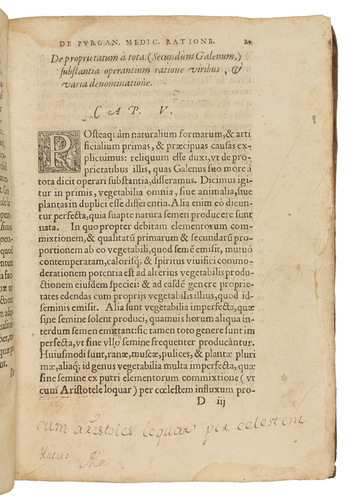 DE PVRGAN. MEDIC. RATIONE.
De proprietatum à tota: (Secundùm Galenum,)
substantia operantium ratione viribus &
varia denominatione.
CAP. V.
POsteaquàm naturalium formarum, & arti
ficialium primas, & præcipuas causas ex
plicuimus: reliquum esse duxi, vt de pro-
prietatibus illis, quas Galenus suo more à
tota dicit operari substantia, disseramus. Dicimus igi
tur in primis, vegetabilia omnia, siue animalia, siue
plantas in duplici esse differentia. Alia enim eò dicun-
tur perfecta, quia suapte natura semen producere sunt
nata. In quo propter debitam elementorum com-
mixtionem, & qualitatũ primarum & secundarũ pro-
portionem ab eo vegetabili, quod semẽ emisit, mutuò
contemperatam, calorisq́; & spiritus viuifici commo-
derationem potentia est ad alterius vegetabilis produ-
ctionem eiusdem speciei: & ad easdẽ genere proprie-
tates edendas cum proprijs vegetabilis illius, quod id-
seminis emisit. Alia sunt vegetabilia imperfecta, quæ
sine semine solent produci, quamuis horum aliqua in-
terdum semen emittant: sic tamen toto genere sunt im
perfecta, vt sine vllo semine frequenter producãtur.
Huiusmodi sunt, ranæ, muscæ, pulices, & plantæ pluri
mæ, aliaq́; id genus vegetabilia multa imperfecta, quæ
sine semine ex putri elementorum commixtione (vt
cum Aristotele loquar) per cœlestem influxum pro-
D iij
cum aristoteles loquar per celestem